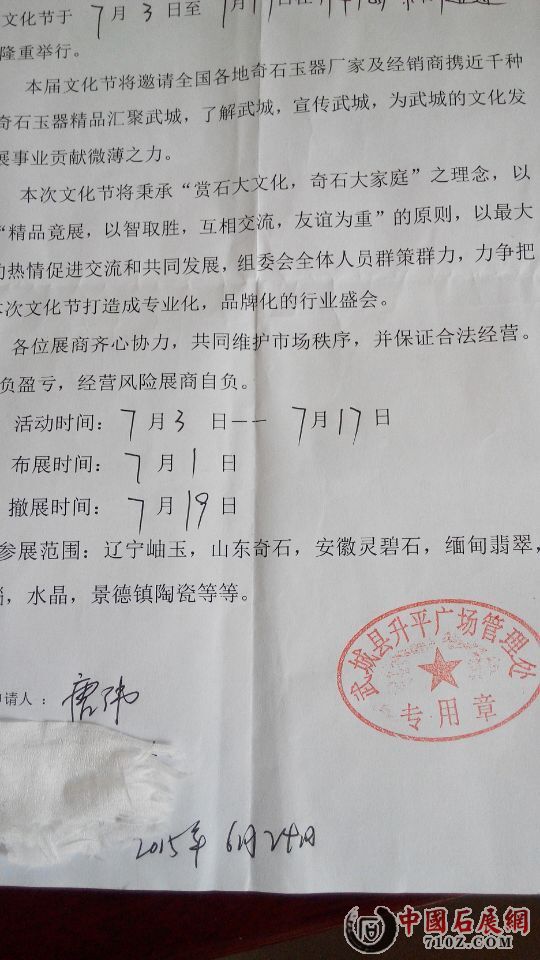 文化节于 7月3日至7月17日在
隆重举行。
本届文化节将邀请全国各地奇石玉器厂家及经销商携近千种
奇石玉器精品汇聚武城，了解武城，宣传武城，为武城的文化发
展事业贡献微薄之力。
本次文化节将秉承“赏石大文化，奇石大家庭”之理念，以
“精品竟展，以智取胜，互相交流，友谊为重”的原则，以最大
的热情促进交流和共同发展，组委会全体人员群策群力，力争把
本次文化节打造成专业化，品牌化的行业盛会。
各位展商齐心协力，共同维护市场秩序，并保证合法经营。
负盈亏，经营风险展商自负。
活动时间：7月3日--7月17日
布展时间：7月1日
撤展时间：7月19日
参展范围：辽宁岫玉，山东奇石，安徽灵碧石，缅甸翡翠，
，水晶，景德镇陶瓷等等。
武城县升平广场管理处
专用章
申请人：唐玮
2015年6月24日
中國石展網
7102.COM